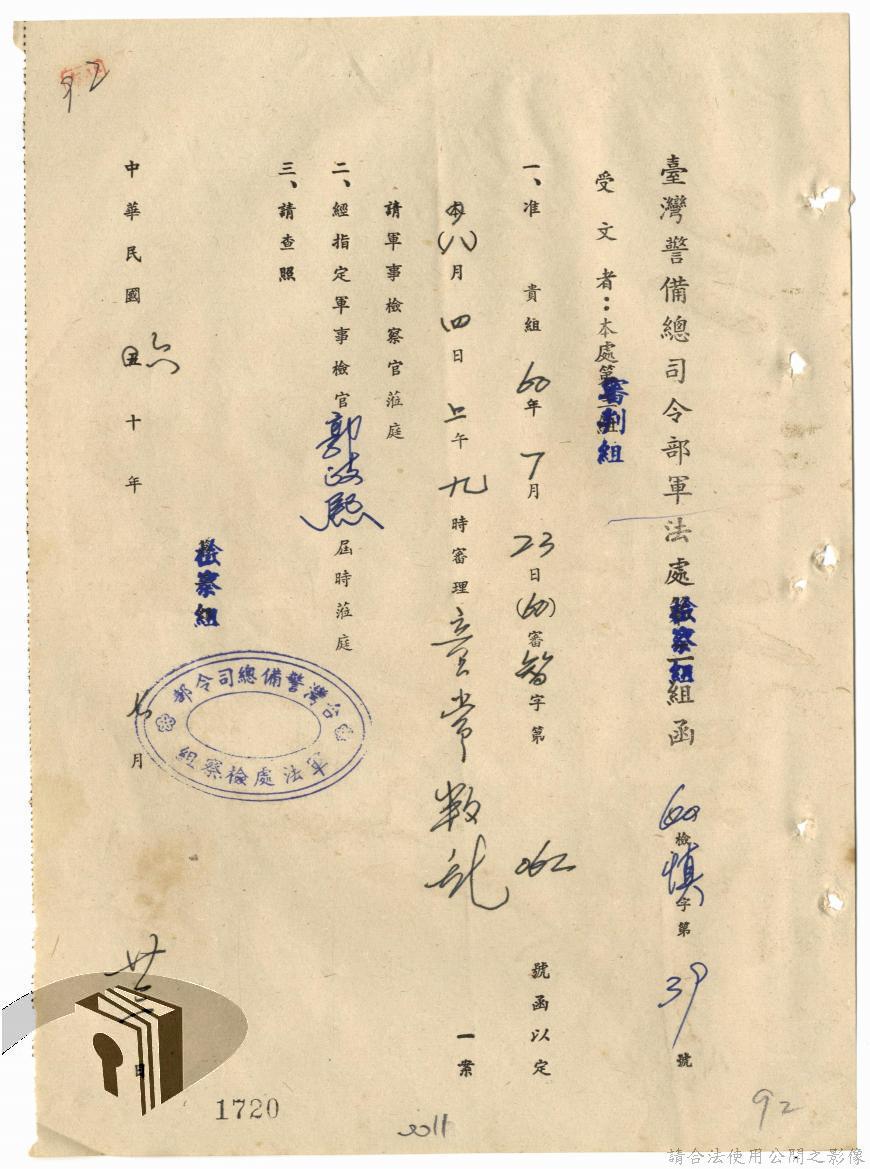 臺灣警備總司令部軍法處檢察組組函 60檢慎字第39號
受文者：本處第
審判組
一、准 貴組60年7月23日(60)審智字第062號函以定
本(八)月四日上午九時審理童常叛乱一案
請軍事檢察官蒞庭
二、經指定軍事檢官郭政熙屆時蒞庭
三、請查照
檢察組
台灣警備總司令部
軍法處檢察組
中華民國六十年七月廿三日
92
1720
92
請合法使用公開之影像